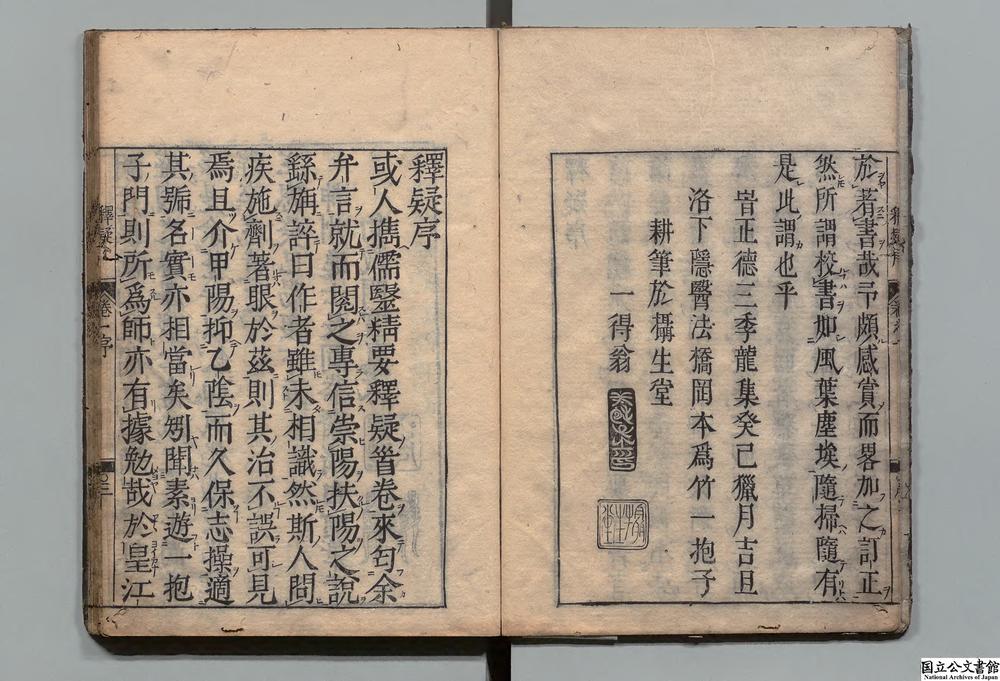 於著書哉予頗感賞而畧加之訂正
然所謂校書如風葉塵埃隨掃隨有
是此謂也乎
旹正德三季龍集癸巳獵月吉旦
洛下隱醫法橋岡本爲竹一抱子
耕筆於攝生堂
一得翁
釋疑序
或人携儒醫精要釋疑首卷來匄余
弁言就而閱之專信崇陽扶陽之說
繇斾誶曰作者雖未相識然斯人問
疾施劑著眼於茲則其治不誤可見
焉且介甲陽抑乙陰而久保志操適
其號名實亦相當矣矧聞素遊一抱
子門則所爲師亦有據勉哉於皇江
釋疑
卷一序
国立公文書館
National Archives of Japan